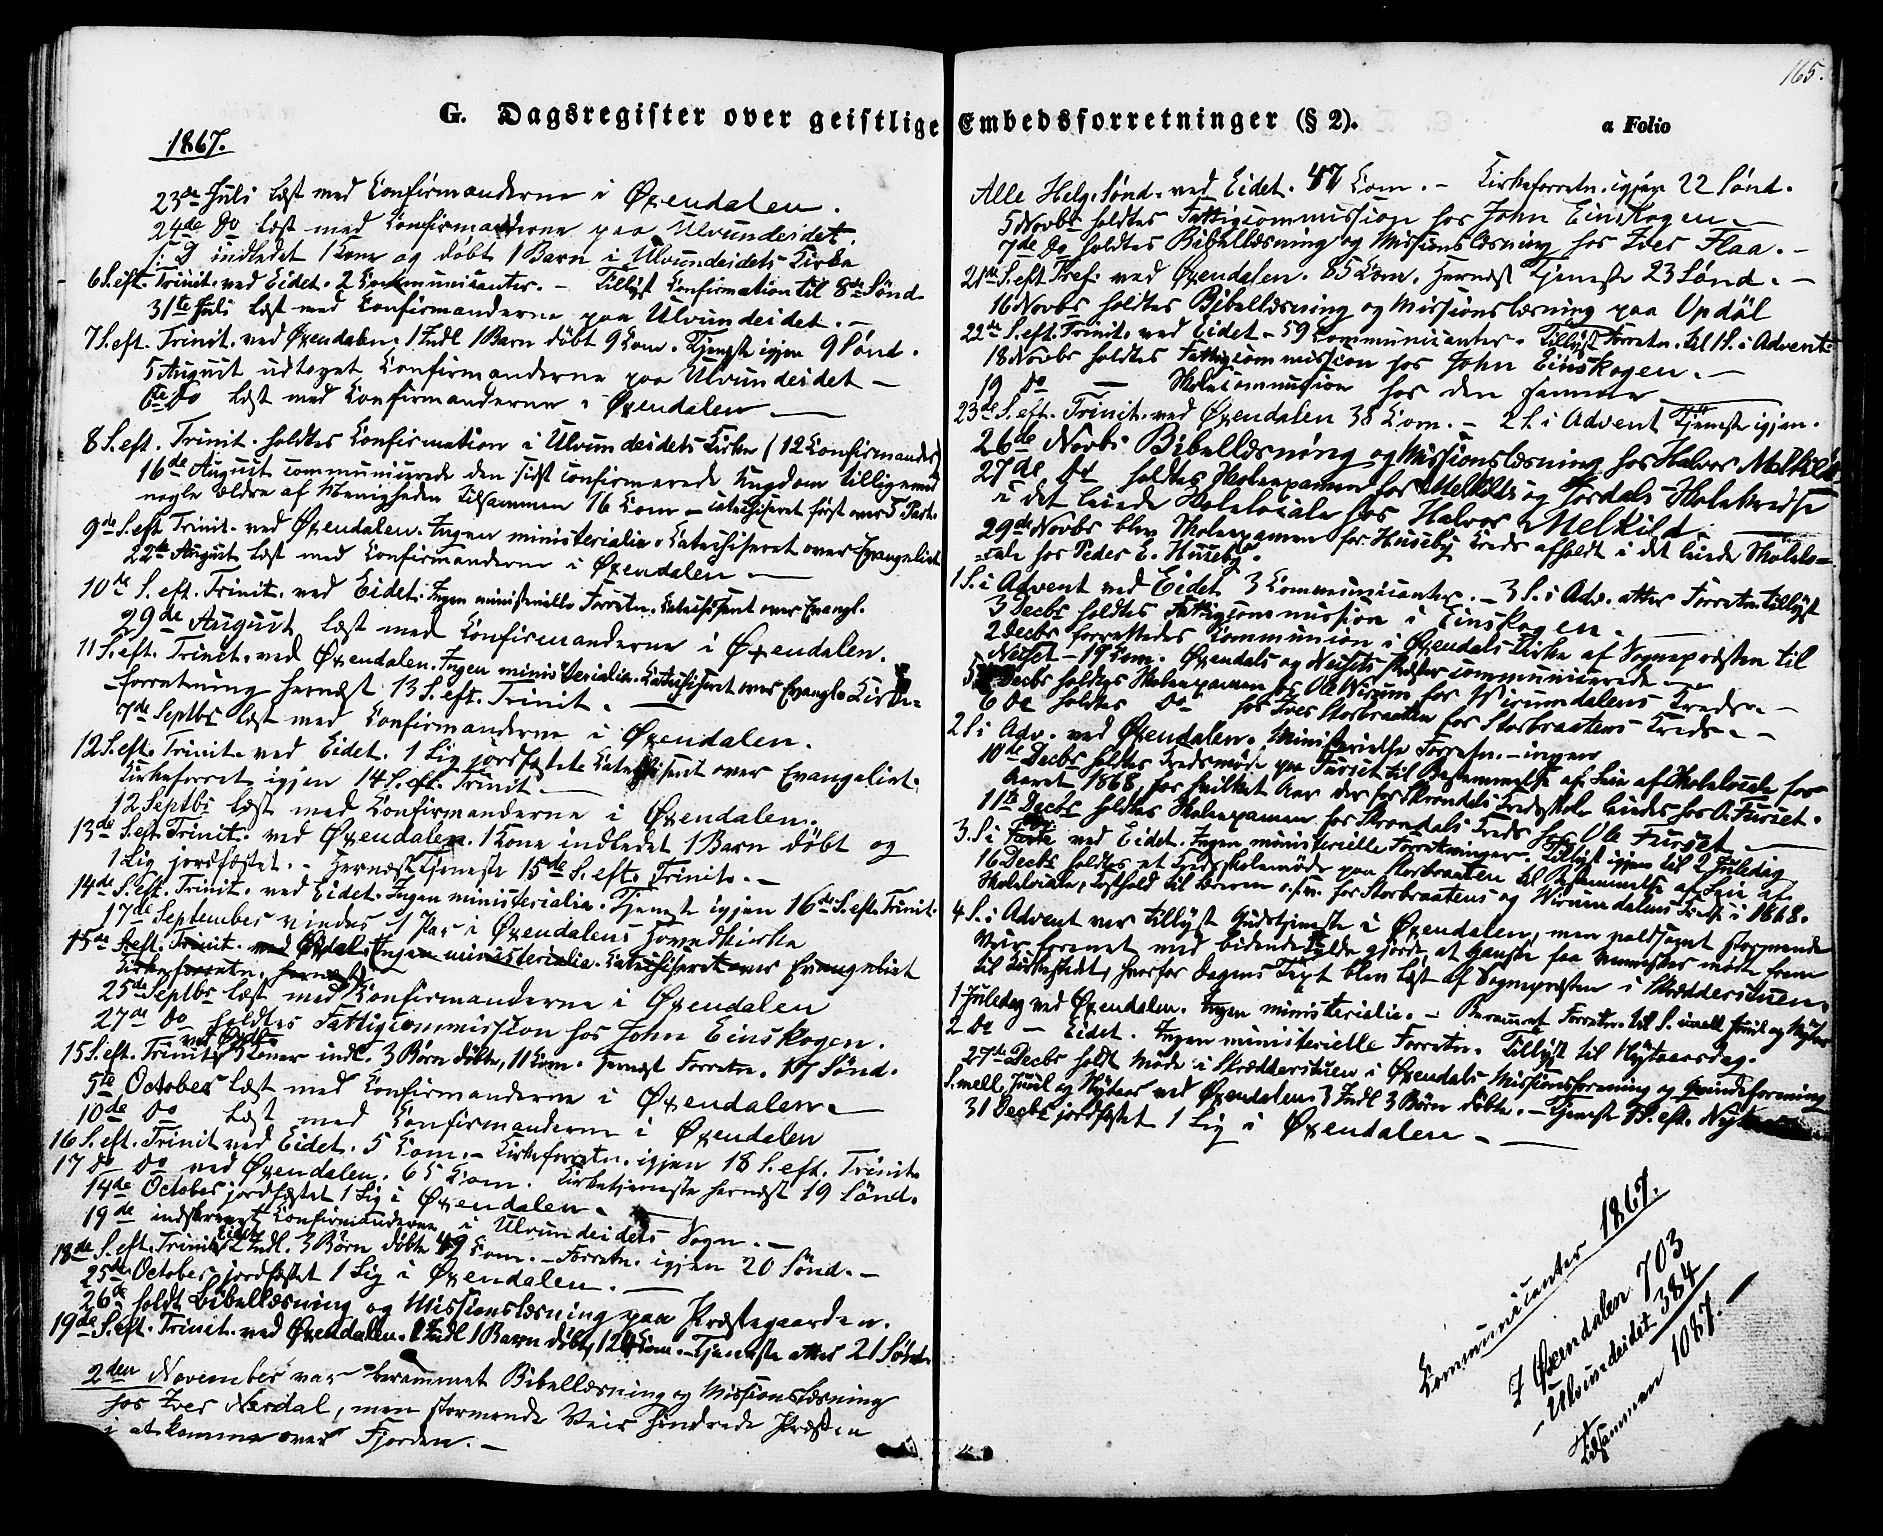 165.
G. Dagsregister over geistlige Embedsforretninger (§ 2).
a Folio
1867.
23de Juli læst med Confirmanderne i Øxendalen.
24de Do læst med Confirmanderne paa Ulvundeidet.
S: D indledet 1 Kone og døbt 1 Barn i Ulvundeidets Kirke
6 S. eft. Trinit. ved Eidet. 2 Communicanter. - Tillyst Confirmation til 8de Sønd.
31te Juli læst med Confirmanderne paa Ulvundeidet. -
7 S. eft. Trinit. ved Øxendalen. 1 Indl 1 Barn döbt 9 Com. Tjeneste igjen 9 Sønd.
5 August udtaget Confirmanderne paa Ulvundeidet -
6te Do læst med Confirmanderne i Øxendalen -
8 S. eft. Trinit. holdtes Confirmation i Ulvundeidets Kirke (12 Confirmander)
16de August communicerede den sidst confirmerede Ungdom tilligemed
nogle Ældre af Menigheden Tilsammen 16 Com - catechiseret først over 5 Part.
9de S. eft Trinit. ved Øxendalen. Ingen ministerialia. Catechiseret over Evangeliet
22de August læst med Confirmanderne i Øxendalen -
10de S. eft. Trinit. ved Eidet. Ingen ministerielle Forretn. Catechiseret over Evangl.
29de August læst med Confirmanderne i Øxendalen.
11 S. eft. Trinit. ved Øxendalen. Ingen ministerialia. Catechiseret over Evangl. Kirke-
-forretning hernæst 13 S. eft. Trinit. -
7de Septbr læst med Confirmanderne i Øxendalen.
12 S. eft. Trinit. ved Eidet. 1 Lig jordfæstet. Catechiseret over Evangeliet.
Kirkeforret igjen 14 S. eft. Trinit -
12 Septbr læst med Confirmanderne i Øxendalen.
13de S. eft Trinit. ved Øxendalen. 1 Kone indledet 1 Barn döbt og
1 Lig jordfæstet. - Hernæst Tjeneste 15de S. eft. Trinit. -
14de S. eft. Trinit. ved Eidet. Ingen ministerialia. Tjeneste igjen 16de S. eft. Trinit.
17de September viedes 1 Par i Øxendalens Hovedkirke
15de S. eft. Trinit. ved Øxdal. Ingen ministerialia. Catechiseret over Evangeliet
Kirkeforretn. hernæst
25de Septbr læst med Confirmanderne i Øxendalen
27de Do holdtes Fattigcommission hos John Einskogen.
ved Øxdl.
15 S. eft. Trinit. 3 Koner indl. 3 Börn döbte, 11 Com. Hernæst Forretn. 17 Sønd.
5te October læst med Confirmanderne i Øxendalen -
10de Do læst med Confirmanderne i Øxendalen
16 S. eft. Trinit ved Eidet. 5 Com. - Kirkeforretn. igjen 18 S. eft. Trinit.
17 Do Do ved Øxendalen. 65 Com. Kirketjeneste hernæst 19 Sønd.
14de October jordfæstet 1 Lig i Øxendalen.
19de indskrevet Confirmanderne i Ulvundeidets Sogn. -
Eidet
18de S. eft. Trinit. 2 Indl. 3 Børn døbte 49 Com. - Forretn. igjen 20 Sönd. -
25de October jordfæstet 1 Lig i Øxendalen. -
26de holdt Bibellæsning og Missionslæsning paa Præstegaarden.
19de S. eft. Trinit. ved Øxendalen. 1 Indl 1 Barn döbt, 124 Com. - Tjeneste atter 21 Sönd.
2den November var berammet Bibellæsning og Missionslæsning
hos Iver Nerdal, men stormende Veir hindrede Præsten
i at komme over Fjorden. -
Alle Helg. Sønd. ved Eidet. 47 Com. - Kirkeforretn. igjen 22 Sønd.
5 Novbr holdtes Fattigcommission hos John Einskogen -
7de Do holdtes Bibellæsning og Missionslæsning hos Iver Flaa. -
21de S. eft Tref. ved Øxendalen. 85 Com. Hernæst Tjeneste 23 Sønd. -
16 Novbr holdtes Bibellæsning og Missionslæsning paa Opdöl
22de S. eft. Trinit. ved Eidet - 59 Communicanter. Tillyst Forretn. til 1 S. i Advent.
18 Novbr holdtes Fattigcommission hos John Einskogen. -
19 Do - Skolecommission hos den samme
23de S. eft. Trinit. ved Øxendalen 38 Com. - 2 S. i Advent Tjeneste igjen.
26de Novbr Bibellæsning og Missionslæsning hos Halvor Melkild
27de Do holdtes Skoleexamen for Melkilds og Jordals Skolekredse
i det leiede Skolelocale hos Halvor Melkild. -
29de Novbr blev Skoleexamen for Huseby Kreds afholdt i det leiede Skolelo-
-cale hos Peder E. Huseby.
1 S. i Advent ved Eidet 3 Communicanter. - 3 S. i Adv. atter Forretn tillyst
3 Decbr holdtes Fattigcommission i Einskogen -
2 Decbr forrettedes Communion i Øxendals Kirke af Sognepræsten til
Nesset - 19 Com. Øxendals og Nessets Præster communicerede -
5 Decbr holdtes Skoleexamen hos Ole Wirum for Wirumdalens Kreds. -
6 Do holdtes Do hos Iver Storbraaten for Storbraatens Kreds. -
2 S. i Adv. ved Øxendalen. Ministerielle Forretn. - ingen.
10de Decbr holdtes Kredsmøde paa Furset til Bestemmelse af Leie af Skolelocale for
Aaret 1868, for hvilket Aar der for Skrondals Kredsskole leiedes hos O. Furset.
11te Decbr holdtes Skoleexamen for Skrondals Kreds hos Ole Furset. -
3. S. i Adv. ved Eidet. Ingen ministerielle Forretninger. Tillyst igjen til 2 Juledag
16 Decbr holdtes et Kredsskolemøde paa Storbraaten til Bestemmelse af Leie af
Skolelocale, Kosthold til Læreren o.s.v. for Storbraatens og Wirumdalens Kreds i 1868.
4. S. i Advent var tillyst Gudstjeneste i Øxendalen, men voldsomt stormende
Veir forenet med bidende Kulde gjorde, at ganske faa Mennesker mødte frem
til Kirkestedet, hvorfor Dagens Text blev læst af Sognepræsten i Skrædderstuen.
1 Juledag ved Øxendalen. Ingen ministerialia. - Berammet Forretn. til S. imell. Juul og Nytaar
2 Do - Eidet. Ingen ministerielle Forretn. Tillyst til Nytaarsdag.
27de Decbr holdt Møde i Skrædderstuen i Øxendals Missionsforening og Qvindeforening
S. mell. Juul og Nytaar ved Øxendalen 3 Indl 3 Børn døbte. - Tjeneste S. eft. Nyt
31 Decbr jordfæstet 1 Lig i Øxendalen -
Communicanter 1867.
I Øxendalen 703
- Ulvundeidet 384
Tilsammen 1087. -